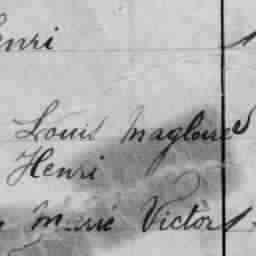 enri
Louis Magloire
Henri
Marie Victor